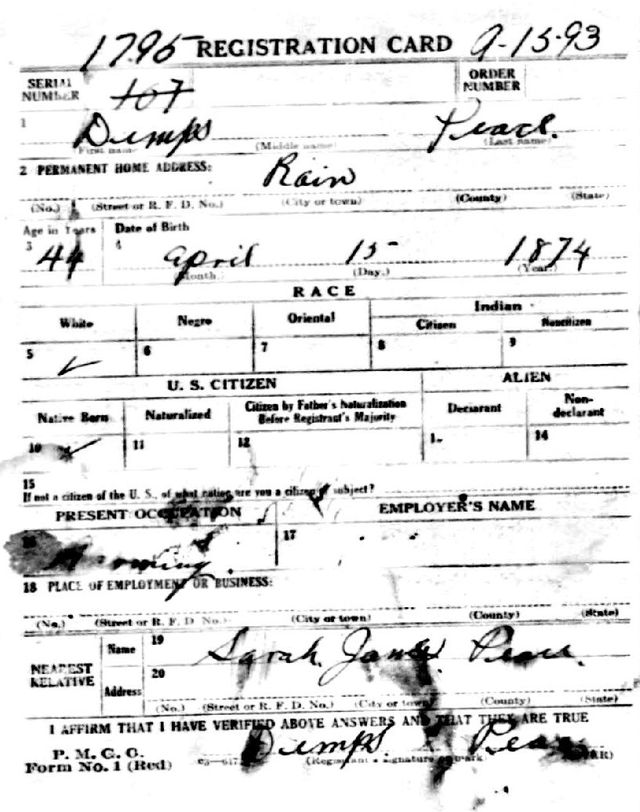 1795 REGISTRATION CARD 9-15-93
SERIAL NUMBER 107 ORDER NUMBER
1 Dumps
First name (Middle name) (Last name)
2 PERMANENT HOME ADDRESS: Rain
(No.) (Street or R. F. D. No.) (City or town) (County) (State)
Age in Years Date of Birth
3 44 4 April 15 1874
Month. (Day.) (Year.)
RACE
White Negro Oriental Indian
Citizen Noncitizen
5 ✓ 6 7 8 9
U. S. CITIZEN ALIEN
Native Born Naturalized Citizen by Father's Naturalization Before Registrant's Majority Declarant Non-declarant
10 ✓ 11 12 14
15
If not a citizen of the U. S., of what nation are you a citizen or subject?
PRESENT OCCUPATION EMPLOYER'S NAME
17
18 PLACE OF EMPLOYMENT OR BUSINESS:
(No.) (Street or R. F. D. No.) (City or town) (County) (State)
NEAREST RELATIVE Name 19 Sarah
Address 20
(No.) (Street or R. F. D. No.) (City or town) (County) (State)
I AFFIRM THAT I HAVE VERIFIED ABOVE ANSWERS AND THAT THEY ARE TRUE
P. M. G. O.
Form No. 1 (Red) Dumps
(Registrant's signature or mark)